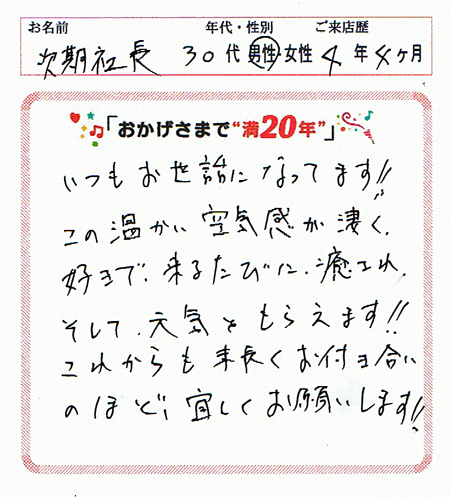 お名前 年代・性別 ご来店歴
次期社長 30代 男性・女性 4年4ヶ月
「おかげさまで“満20年”」
いつもお世話になってます!!
この温かい空気感が凄く、
好きで、来るたびに、癒され、
そして、元気をもらえます!!
これからも末長くお付き合い
のほど、宜しくお願いします!!